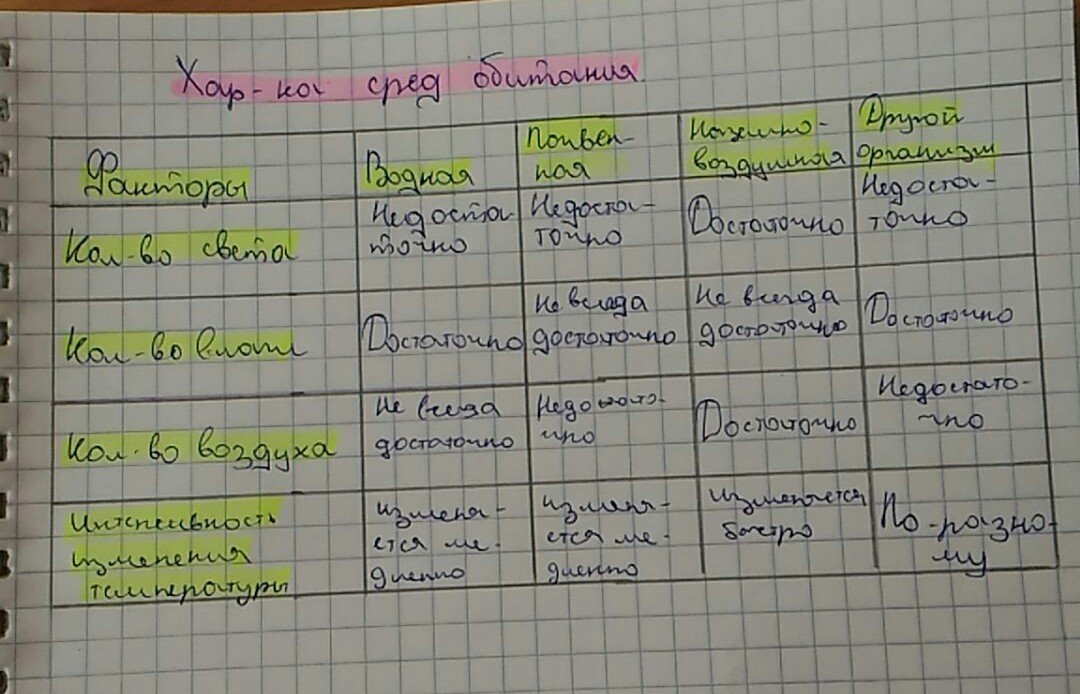 Хар-ка сред обитания
Факторы
Водная
Почвен-
ная
Наземно-
воздушная
Другой
организм
Кол-во света
Недоста
точно
Недоста-
точно
Достаточно
Недоста-
точно
Кол-во влаги
Достаточно
Не всегда
достаточно
Не всегда
достаточно
Достаточно
Кол-во воздуха
Не всегда
достаточно
Недостато-
чно
Достаточно
Недостато-
чно
Интенсивность
изменения
температуры
изменя-
ется ме-
дленно
изменя-
ется ме-
дленно
изменяется
быстро
По-разно-
му